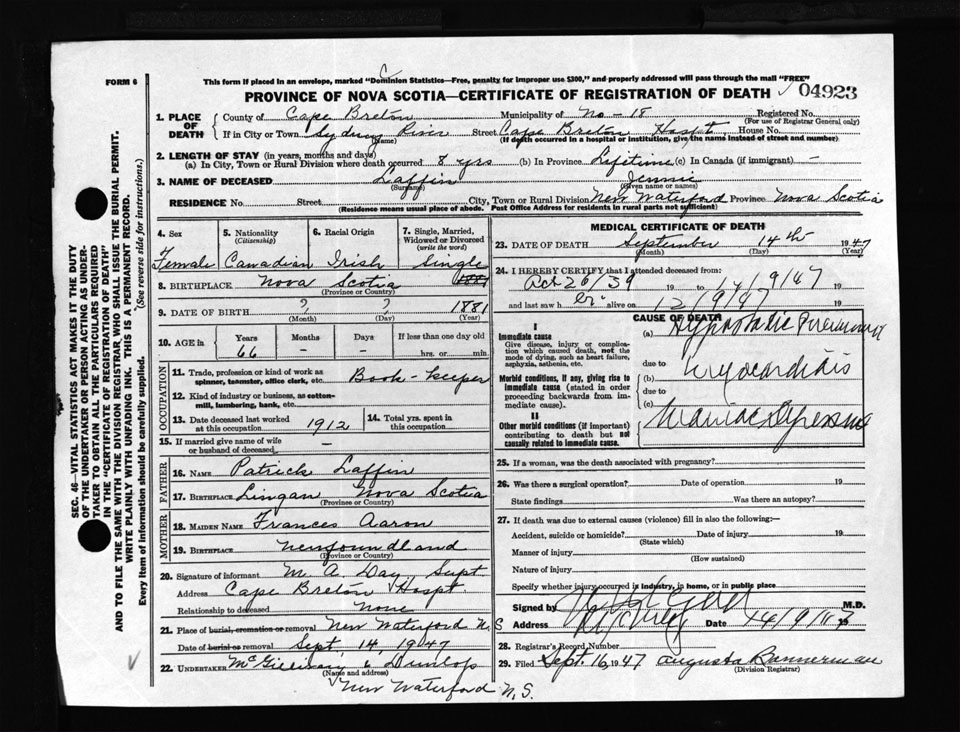 FORM 6
This form if placed in an envelope, marked "Dominion Statistics—Free, penalty for improper use $300," and properly addressed will pass through the mail "FREE"
PROVINCE OF NOVA SCOTIA—CERTIFICATE OF REGISTRATION OF DEATH 04923
1. PLACE OF DEATH County of Cape Breton Municipality of No - 18 Registered No.
(For use of Registrar General only)
If in City or Town Sydney River Street Cape Breton Hospt. House No.
(Name) (If death occurred in a hospital or institution, give the name instead of street and number)
2. LENGTH OF STAY (in years, months and days)
(a) In City, Town or Rural Division where death occurred 8 yrs (b) In Province Lifetime (c) In Canada (if immigrant) —
3. NAME OF DECEASED Laffin Jennie
(Surname) (Given name or names)
RESIDENCE No. Street City, Town or Rural Division New Waterford Province Nova Scotia
(Residence means usual place of abode. Post Office Address for residents in rural parts not sufficient)
4. Sex Female
5. Nationality (Citizenship) Canadian
6. Racial Origin Irish
7. Single, Married, Widowed or Divorced (write the word) Single
8. BIRTHPLACE Nova Scotia 1881
(Province or Country)
9. DATE OF BIRTH ? ? 1881
(Month) (Day) (Year)
10. AGE in Years Months Days If less than one day old
66 - - hrs. or min.
OCCUPATION
11. Trade, profession or kind of work as spinner, teamster, office clerk, etc. Book-keeper
12. Kind of industry or business, as cotton-mill, lumbering, bank, etc.
13. Date deceased last worked at this occupation 1912
14. Total yrs. spent in this occupation
15. If married give name of wife or husband of deceased —
FATHER
16. NAME Patrick Laffin
17. BIRTHPLACE Lingan Nova Scotia
(Province or Country)
MOTHER
18. MAIDEN NAME Frances Aaron
19. BIRTHPLACE Newfoundland
(Province or Country)
20. Signature of informant M. A. Day, Supt
Address Cape Breton Hospt.
Relationship to deceased None
21. Place of burial, cremation or removal New Waterford N.S
Date of burial or removal Sept. 14, 1947
22. UNDERTAKER McGillivary & Dunlop
(Name and address)
New Waterford N.S.
MEDICAL CERTIFICATE OF DEATH
23. DATE OF DEATH September 14th 1947
(Month) (Day) (Year)
24. I HEREBY CERTIFY that I attended deceased from:
Oct 26/39 19 to 14/9/47 19
and last saw her alive on 12/9/47 19
CAUSE OF DEATH
I
Immediate cause
Give disease, injury or complication which caused death, not the mode of dying, such as heart failure, asphyxia, asthenia, etc.
(a) Hypostatic Pneumonia
due to
Morbid conditions, if any, giving rise to immediate cause (stated in order proceeding backwards from immediate cause).
(b) Myocarditis
due to
(c)
II
Other morbid conditions (if important) contributing to death but not causally related to immediate cause.
Maniac Depressive
25. If a woman, was the death associated with pregnancy?
26. Was there a surgical operation? Date of operation 19
State findings Was there an autopsy?
27. If death was due to external causes (violence) fill in also the following:—
Accident, suicide or homicide? Date of injury 19
(State which)
Manner of injury
(How sustained)
Nature of injury
Specify whether injury occurred in industry, in home, or in public place
Signed by M.D.
Address Date 14/9/47 19
28. Registrar's Record Number
29. Filed Sept. 16, 1947 Augusta Bannerman
(Division Registrar)
SEC. 46—VITAL STATISTICS ACT MAKES IT THE DUTY
OF THE UNDERTAKER OR PERSON ACTING AS UNDER-
TAKER TO OBTAIN ALL THE PARTICULARS REQUIRED
IN THE "CERTIFICATE OF REGISTRATION OF DEATH"
AND TO FILE THE SAME WITH THE DIVISION REGISTRAR WHO SHALL ISSUE THE BURIAL PERMIT.
WRITE PLAINLY WITH UNFADING INK. THIS IS A PERMANENT RECORD.
Every item of information should be carefully supplied. (See reverse side for instructions.)